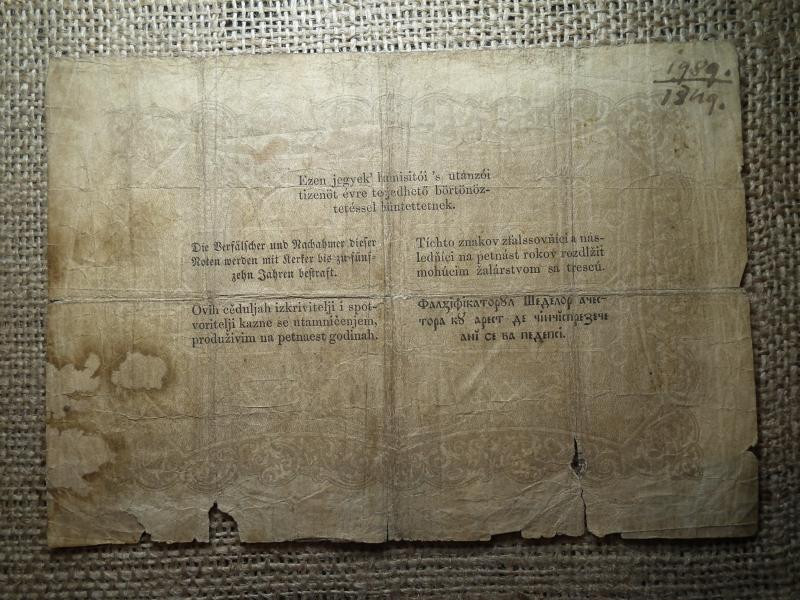 1989.
1849.
Ezen jegyek' hamisitói 's utánzói
tizenöt évre terjedhető börtönöz-
tetéssel büntettetnek.
Die Verfälscher und Nachahmer dieser
Noten werden mit Kerker bis zu fünf-
zehn Jahren bestraft.
Tíchto znakov zfalssovňíci a nás-
ledňíci na petnást rokov rozdlžit
mohúcim žalárstvom sa trescú.
Ovih céduljah izkrivitelji i spot-
voritelji kazne se utamničenjem,
produživim na petnaest godinah.
Фалціфікаторꙋл Шеделор ачес-
тора кꙋ арест де чінчіспрезече
ані се ва педепсі.